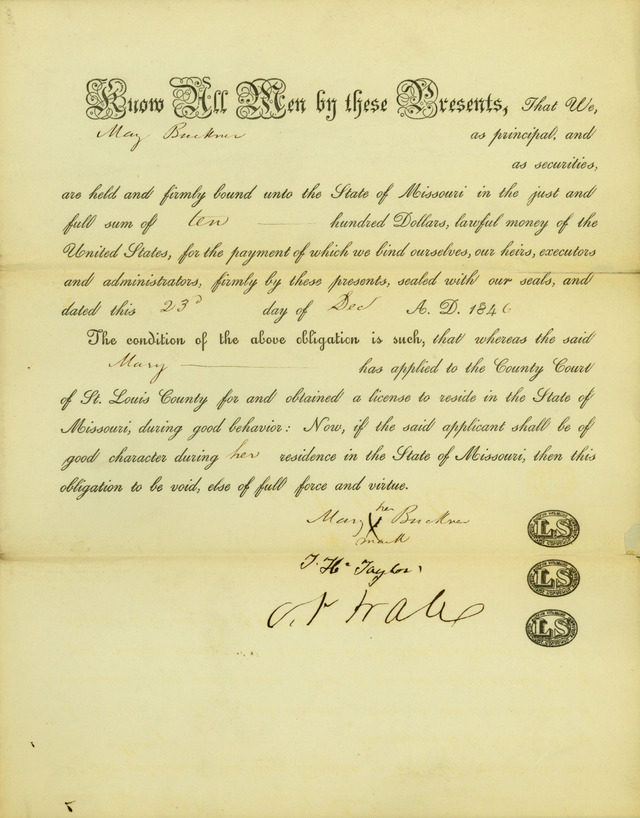 Know All Men by these Presents, That We,
Mary Buckner as principal, and
as securities,
are held and firmly bound unto the State of Missouri in the just and
full sum of ten hundred Dollars, lawful money of the
United States, for the payment of which we bind ourselves, our heirs, executors
and administrators, firmly by these presents, sealed with our seals, and
dated this 23d day of Dec A. D. 1846
The condition of the above obligation is such, that whereas the said
Mary has applied to the County Court
of St. Louis County for and obtained a license to reside in the State of
Missouri, during good behavior: Now, if the said applicant shall be of
good character during her residence in the State of Missouri, then this
obligation to be void, else of full force and virtue.
her
Mary X Buckner LS
mark
Taylor LS
LS